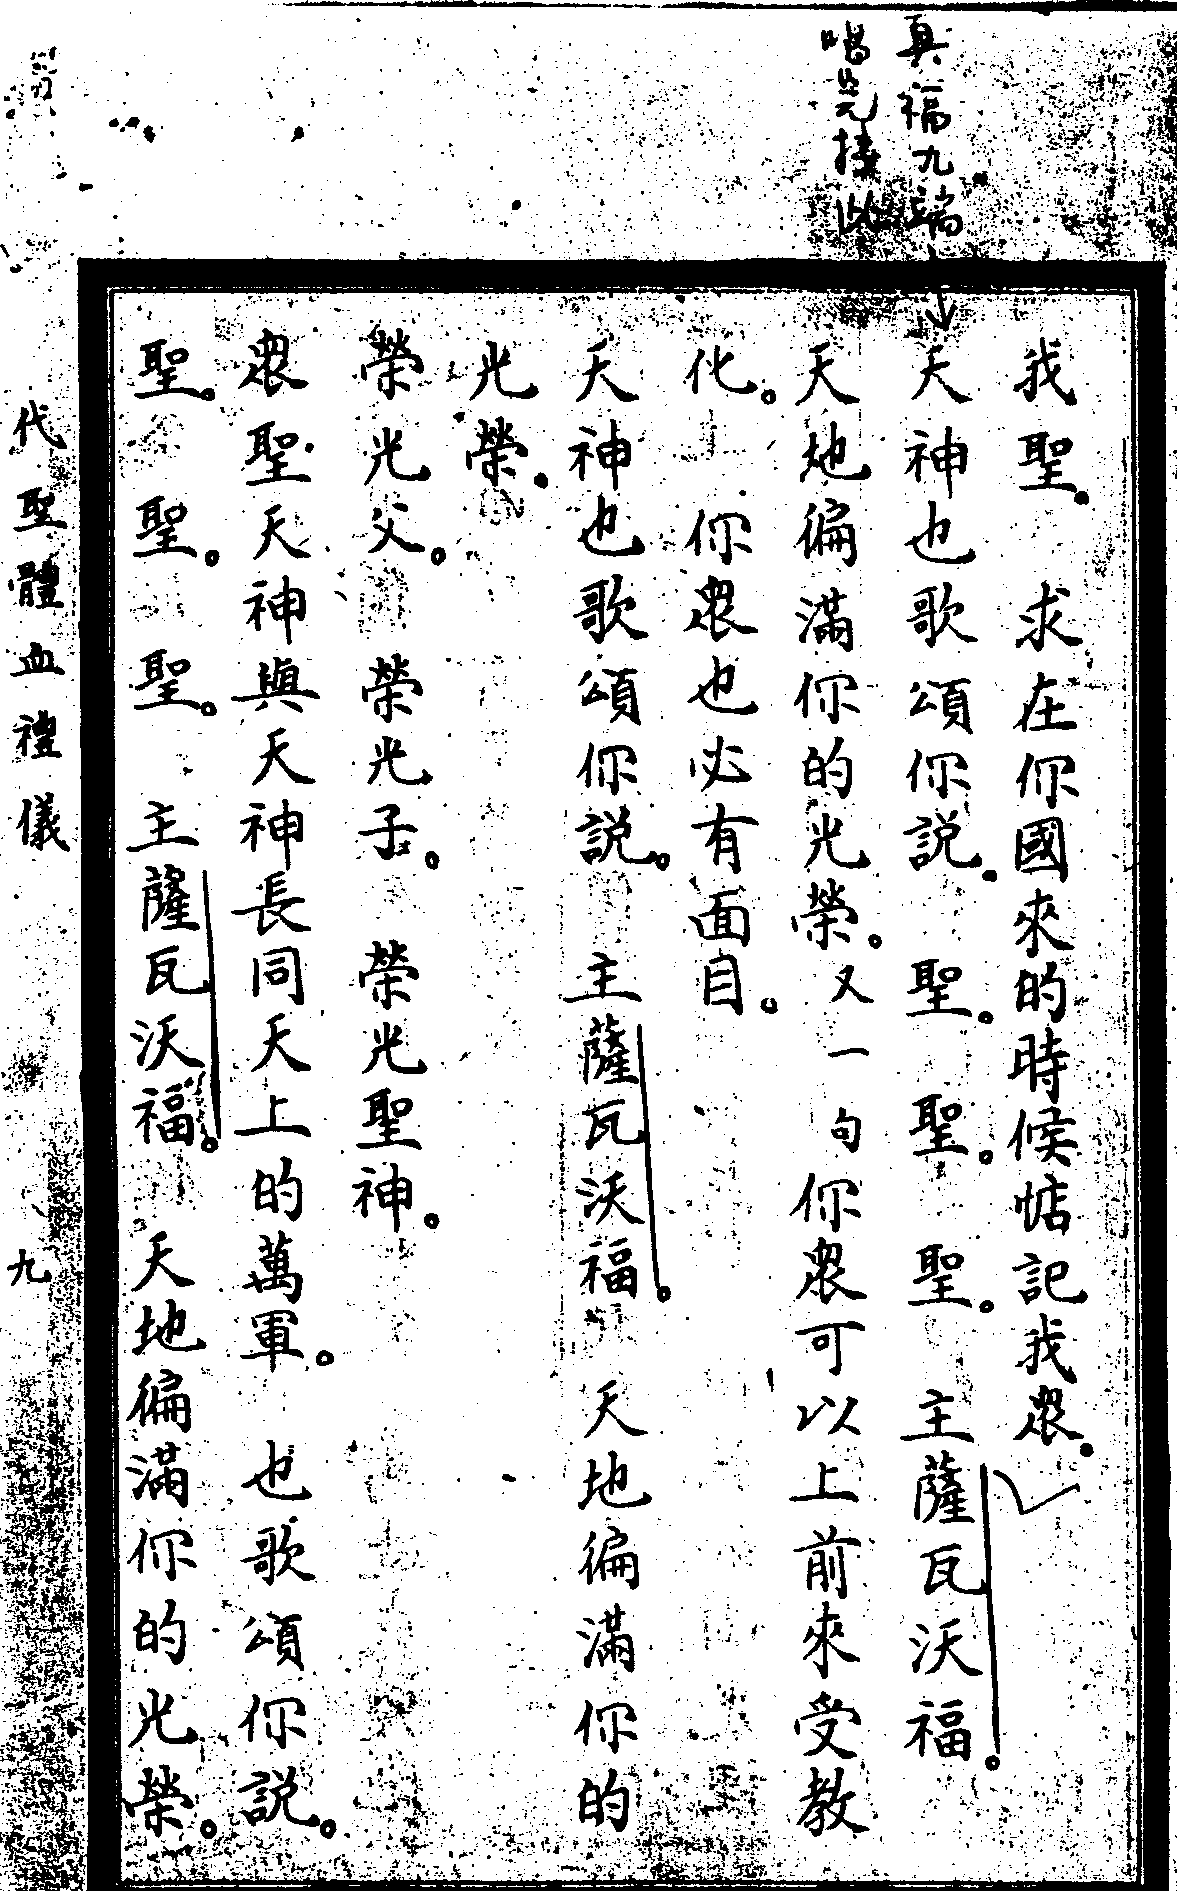 真福九端
唱完接此
我聖。 求在你國來的時候惦記我衆。
天神也歌頌你説。 聖。 聖。 聖。 主薩瓦沃福。
天地徧滿你的光榮。又一句你衆可以上前來受教
化。 你衆也必有面目。
天神也歌頌你説。 主薩瓦沃福。 天地徧滿你的
光榮。
榮光父。 榮光子。 榮光聖神。
衆聖天神與天神長同天上的萬軍。 也歌頌你説。
聖。 聖。 聖。 主薩瓦沃福。 天地徧滿你的光榮。
代聖體血禮儀 九